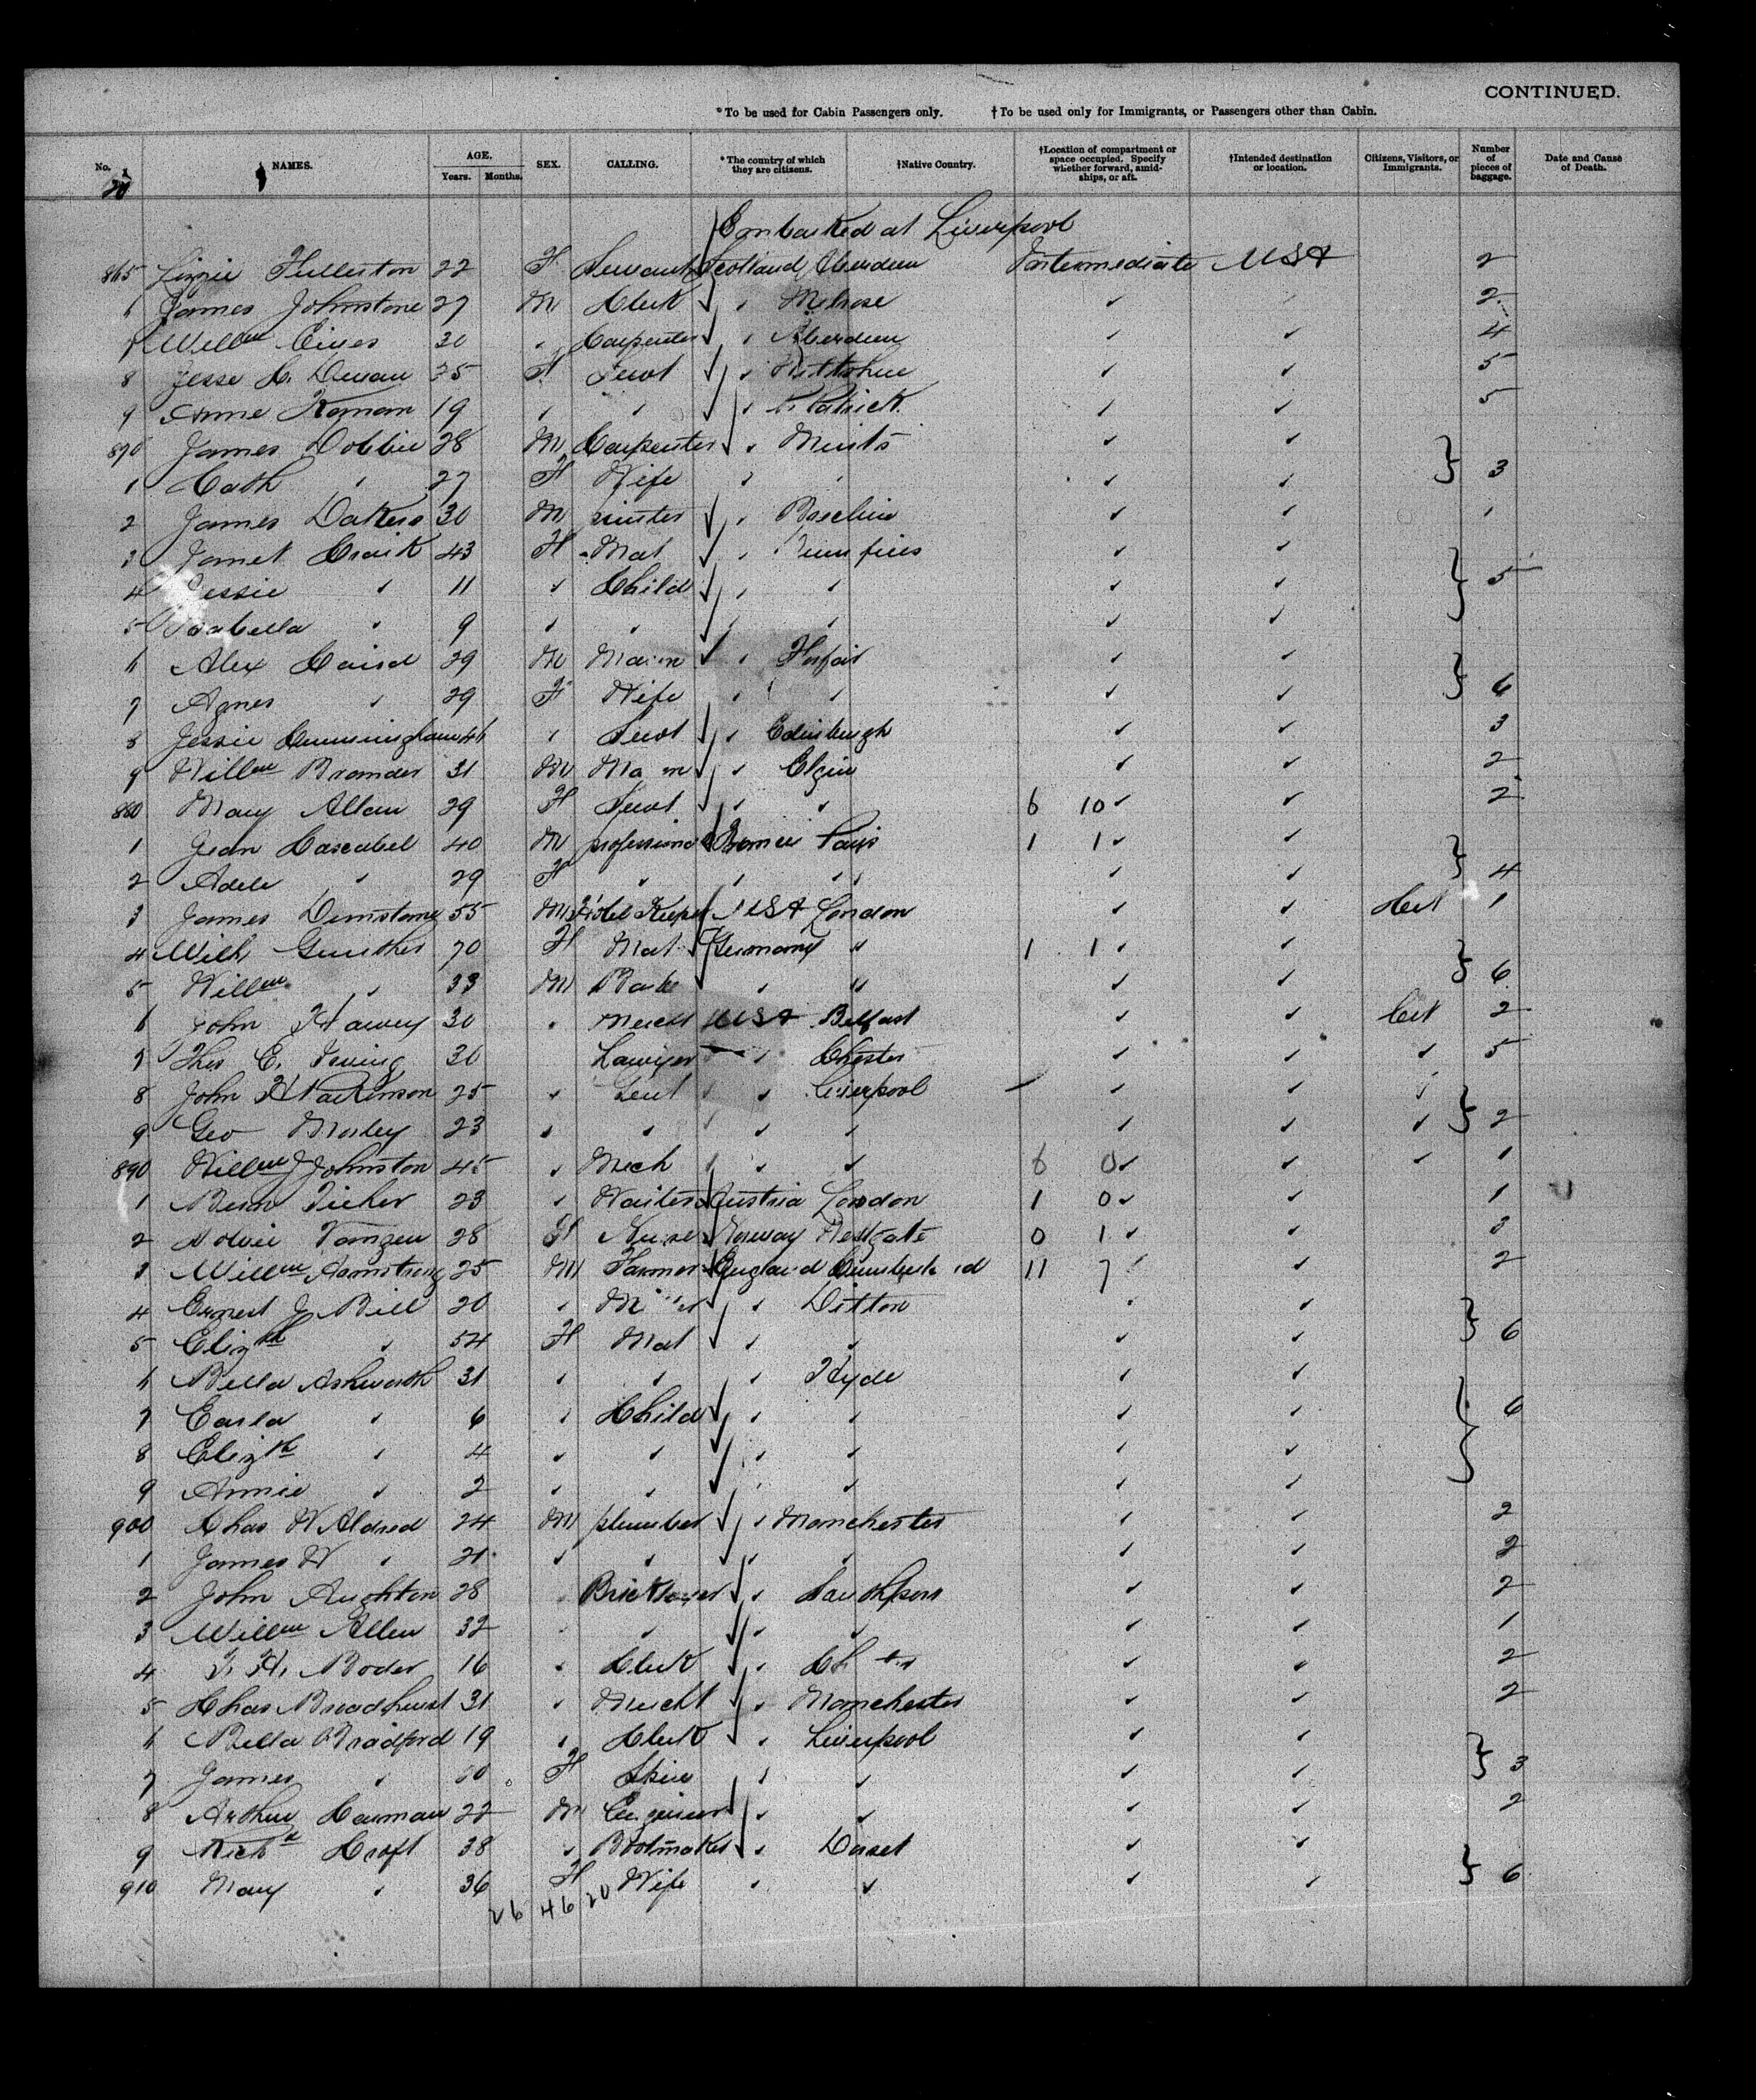 CONTINUED.
*To be used for Cabin Passengers only. †To be used only for Immigrants, or Passengers other than Cabin.
No. NAMES. AGE. Years. Months. SEX. CALLING. *The country of which they are citizens. †Native Country. †Location of compartment or space occupied. Specify whether forward, amidships, or aft. †Intended destination or location. Citizens, Visitors, or Immigrants. Number of pieces of baggage. Date and Cause of Death.
Embarked at Liverpool
865 Lizzie Fullerton 22 F Servant Scotland Aberdeen Intermediate USA 2
6 James Johnstone 27 M Clerk " Melrose 2
7 Willm 30 " Carpenter " Aberdeen 4
8 Jesse 35 F Servt " 5
9 Annie 19 " " " 5
870 James Dobbie 28 M Carpenter "
1 Cath " 27 F Wife " " 3
2 James Dakers 30 M printer " Brechin 1
3 Janet Craik 43 F Mat "
4 Jessie " 11 " Child " " 5
5 Isabella " 9 " " " "
6 Alex Caird 29 M Mason " Forfar
7 Agnes " 29 F Wife " " 6
8 Jessie Cunningham 46 " Servt " Edinburgh 3
9 Willm Brander 31 M Mason " Elgin 2
880 Mary Allan 29 F Servt " " 6 10 2
1 Jean Cascabel 40 M professional Paris 1 1
2 Adele " 29 F " " " 4
3 James 55 M Hotel Keeper USA London Cit 1
4 Wilh Gunther 70 F Mat Germany " 1 1
5 Willm " 33 M " " 6
6 John Harvey 30 " Mercht USA Belfast Cit 2
7 Thos E. Irving 30 Lawyer " Chester " 5
8 John H Parkinson 25 " Gent " Liverpool "
9 Geo Morley 23 " " " " " 2
890 Willm J Johnston 45 " Mech " " 6 0 " 1
1 23 " Waiter Austria London 1 0 1
2 28 F Nurse Norway 0 1 3
3 Willm Armstrong 25 M Farmer England 11 7 2
4 Ernest J Bill 20 " " Ditton
5 Elizth " 54 F Mat " " 6
6 Bella Ashworth 31 " " " Hyde
7 Earla " 6 " Child " " 6
8 Elizth " 4 " " " "
9 Annie " 2 " " " "
900 Chas W Aldred 24 M plumber " Manchester 2
1 James W " 21 " " " " 2
2 John Aughton 28 Bricklayer " Southport 2
3 Willm Allen 32 " " " " 1
4 16 " Clerk " 2
5 Chas Broadhurst 31 " Mercht " Manchester 2
6 Bella Bradford 19 " Clerk " Liverpool
7 James " F " " 3
8 Arthur 22 M Engineer " " 2
9 Richd Croft 38 " Bootmaker " Dorset
910 Mary " 36 F Wife " " 6
26 46 20